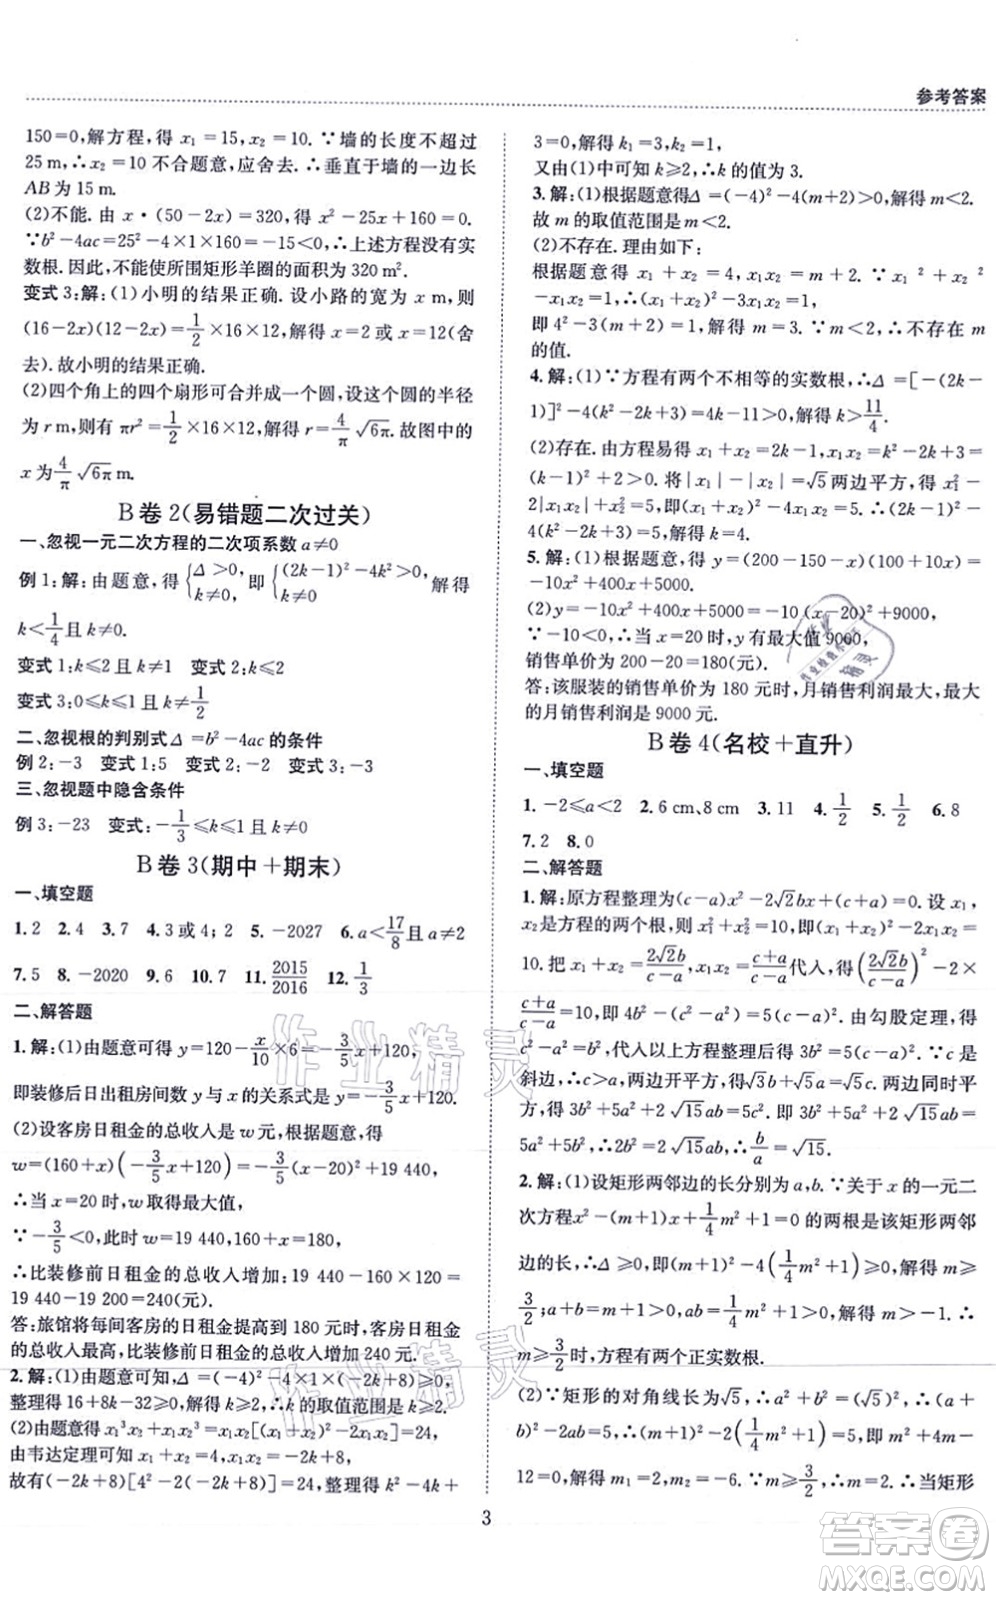 参考答案
150=0,解方程,得 x₁=15,x₂=10.∵墙的长度不超过
25 m,∴x₂=10 不合题意,应舍去.∴垂直于墙的一边长
AB 为 15 m.
(2)不能.由 x·(50-2x)=320,得 x²-25x+160=0.
∵b²-4ac=25²-4×1×160=-15<0,∴上述方程没有实
数根.因此,不能使所围矩形羊圈的面积为 320 m².
变式 3:解:(1)小明的结果正确.设小路的宽为 x m,则
(16-2x)(12-2x)=1/2×16×12,解得 x=2 或 x=12(舍
去).故小明的结果正确.
(2)四个角上的四个扇形可合并成一个圆,设这个圆的半径
为 r m,则有 πr²=1/2×16×12,解得 r=4/π√6π.故图中的
x 为 4/π√6π m.
B卷2(易错题二次过关)
一、忽视一元二次方程的二次项系数 a≠0
例 1:解:由题意,得{Δ>0, k≠0, 即{(2k-1)²-4k²>0, k≠0, 解得
k<1/4且 k≠0.
变式 1:k≤2 且 k≠1 变式 2:k≤2
变式 3:0≤k≤1 且 k≠1/2
二、忽视根的判别式 Δ=b²-4ac 的条件
例 2:-3 变式 1:5 变式 2:-3 变式 3:-3
三、忽视题中隐含条件
例 3:-23 变式:-1/3≤k≤1 且 k≠0
B卷3(期中+期末)
一、填空题
1.2 2.4 3.7 4.3 或 4;2 5.-2027 6.a<17/8且 a≠2
7.5 8.-2020 9.6 10.7 11.2015/2016 12.1/3
二、解答题
1.解:(1)由题意可得 y=120-x/10×6=-3/5x+120,
即装修后日出租房间数 y 与 x 的关系式是 y=-3/5x+120.
(2)设客房日租金的总收入是 w 元,根据题意,得
w=(160+x)(-3/5x+120)=-3/5(x-20)²+19 440,
∴当 x=20 时,w 取得最大值,
∵-3/5<0,∴w=19 440,160+x=180,
∴比装修前日租金的总收入增加:19 440-160×120=
19 440-19 200=240(元).
答:旅馆将每间客房的日租金提高到 180 元时,客房日租金
的总收入最高,比装修前日租金的总收入增加 240 元.
2.解:(1)由题意可知,Δ=(-4)²-4×1×(-2k+8)≥0,
整理得 16+8k-32≥0,解得 k≥2.∴k 的取值范围是 k≥2.
(2)由题意得 x₁³x₂+x₁x₂³=x₁x₂[(x₁+x₂)²-2x₁x₂]=24,
由韦达定理可知 x₁+x₂=4,x₁x₂=-2k+8,
故有(-2k+8)[4²-2(-2k+8)]=24,整理得 k²-4k+
3=0,解得 k₁=3,k₂=1.
又由(1)中可知 k≥2,∴k 的值为 3.
3.解:(1)根据题意得Δ=(-4)²-4(m+2)>0,解得 m<2.
故 m 的取值范围是 m<2.
(2)不存在.理由如下:
根据题意得 x₁+x₂=4,x₁x₂=m+2.∵x₁²+x₂²
-x₁x₂=1,∴(x₁+x₂)²-3x₁x₂=1,
即 4²-3(m+2)=1,解得 m=3.∵m<2,∴不存在 m
的值.
4.解:(1)∵方程有两个不相等的实数根,∴Δ=[-(2k-
1)]²-4(k²-2k+3)=4k-11>0,解得 k>11/4.
(2)存在.由方程易得 x₁+x₂=2k-1,x₁x₂=k²-2k+3=
(k-1)²+2>0.将|x₁|-|x₂|=√5两边平方,得 x₁²-
2|x₁x₂|+x₂²=5,即(x₁+x₂)²-4x₁x₂=5.∴(2k-1)²-
4(k²-2k+3)=5,即 4k-11=5.解得 k=4.
5.解:(1)根据题意,得 y=(200-150-x)(100+10x)=
-10x²+400x+5000.
(2)y=-10x²+400x+5000=-10(x-20)²+9000,
∵-10<0,∴x=20 时,y 有最大值 9000,
销售单价为 200-20=180(元).
答:该服装的销售单价为 180 元时,月销售利润最大,最大
的月销售利润是 9000 元.
B卷4(名校+直升)
一、填空题
1.-2≤a<2 2.6 cm、8 cm 3.11 4.1/2 5.1/2 6.8
7.2 8.0
二、解答题
1.解:原方程整理为(c-a)x²-2√2bx+(c+a)=0.设 x₁,
x₂是方程的两个根,则 x₁²+x₂²=10.即(x₁+x₂)²-2x₁x₂=
10.把 x₁+x₂=2√2b/(c-a),x₁x₂=(c+a)/(c-a)代入,得(2√2b/(c-a))²-2×
(c+a)/(c-a)=10,即 4b²=(c-a)(6c-4a).由勾股定理,得
b²=c²-a²,代入以上方程整理后得 3b²=5(c-a)².∵c 是
斜边,∴c>a,两边开平方,得√3b=√5(c-a).∴√3b+
√5a=√5c,两边同时
平方,得 3b²+5a²+2√15ab=5c²,即 3b²+5a²+2√15ab=
5a²+5b²,∴2b²=2√15ab,∴b/a=√15.
2.解:(1)设矩形两邻边的长分别为 a,b.∵关于 x 的一元二
次方程x²-(m+1)x+1/4m²+1=0 的两根是该矩形两邻
边的长,∴Δ≥0,∴(m+1)²-4(1/4m²+1)≥0,解得 m≥
3/2;a+b=m+1>0,ab=1/4m²+1>0.解得 m>-1.∴
m≥3/2时,方程有两个正实数根.
(2)∵矩形的对角线长为√5,∴a²+b²=(√5)²,∴(a+
b)²-2ab=5,∴(m+1)²-2(1/4m²+1)=5,∴m²+4m-
12=0,解得 m₁=2,m₂=-6.∵m≥3/2,∴m=2.∴当矩形
3
作业精灵
作业精灵
答案圈
MXQE.COM